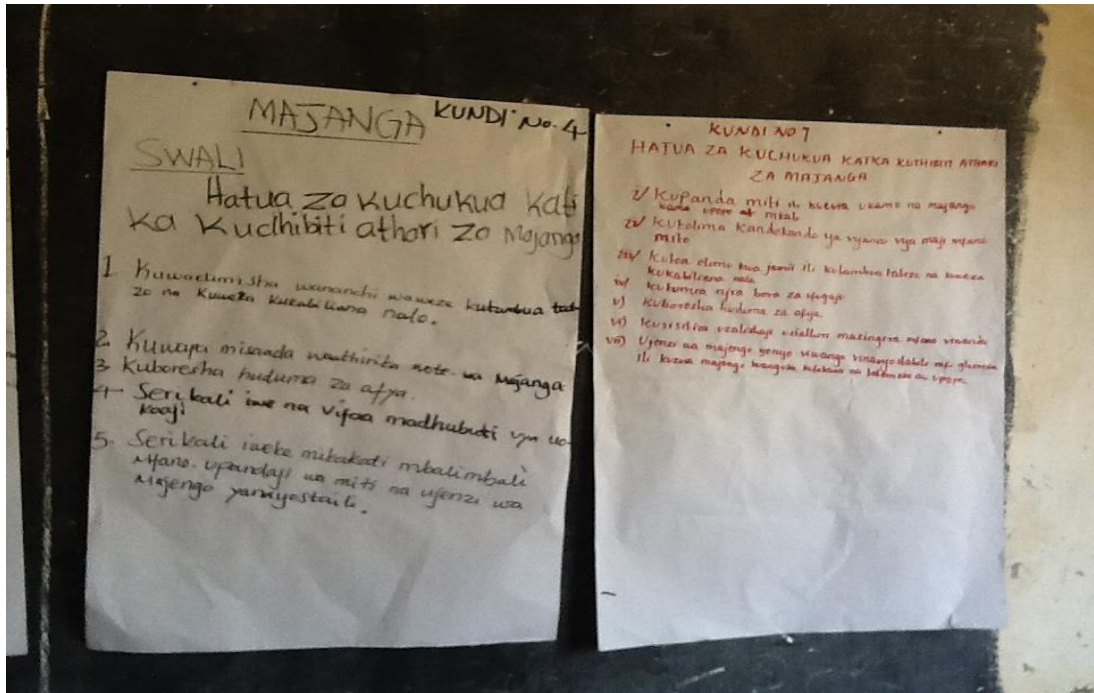 MAJANGA KUNDI No. 4
SWALI
Hatua za kuchukua kati
ka kudhibiti athari za Majanga
1. Kuwaelimisha wananchi waweze kutambua
na kuweza kukabiliana nalo.
2. Kuwapa misaada waathirika wote wa Majanga
3. Kuboresha huduma za afya.
4 Serikali iwe na vifaa madhubuti vya uo
koaji
5. Serikali iweke mikakati mbalimbali
Mfano. upandaji wa miti na ujenzi wa
Majengo yanayostaili.
KUNDI NO 7
HATUA ZA KUCHUKUA KATIKA KUTHIBITI ATHARI
ZA MAJANGA
i/ Kupanda miti ili kuzuia ukame na majanga
kama upepo mkali
ii/ Kutolima kandokando ya vyanzo vya maji mfano
mito
iii/ Kutoa elimu kwa jamii ili kutambua tatizo na kuweza
kukabiliana nalo
iv/ Kutumia njia bora za ufugaji
v) Kuboresha huduma za afya
vi) Kusisitiza uzalishaji mazingira mfano viwanda
vii) Ujenzi wa majengo yenye viwango
ili kuzuia majanga